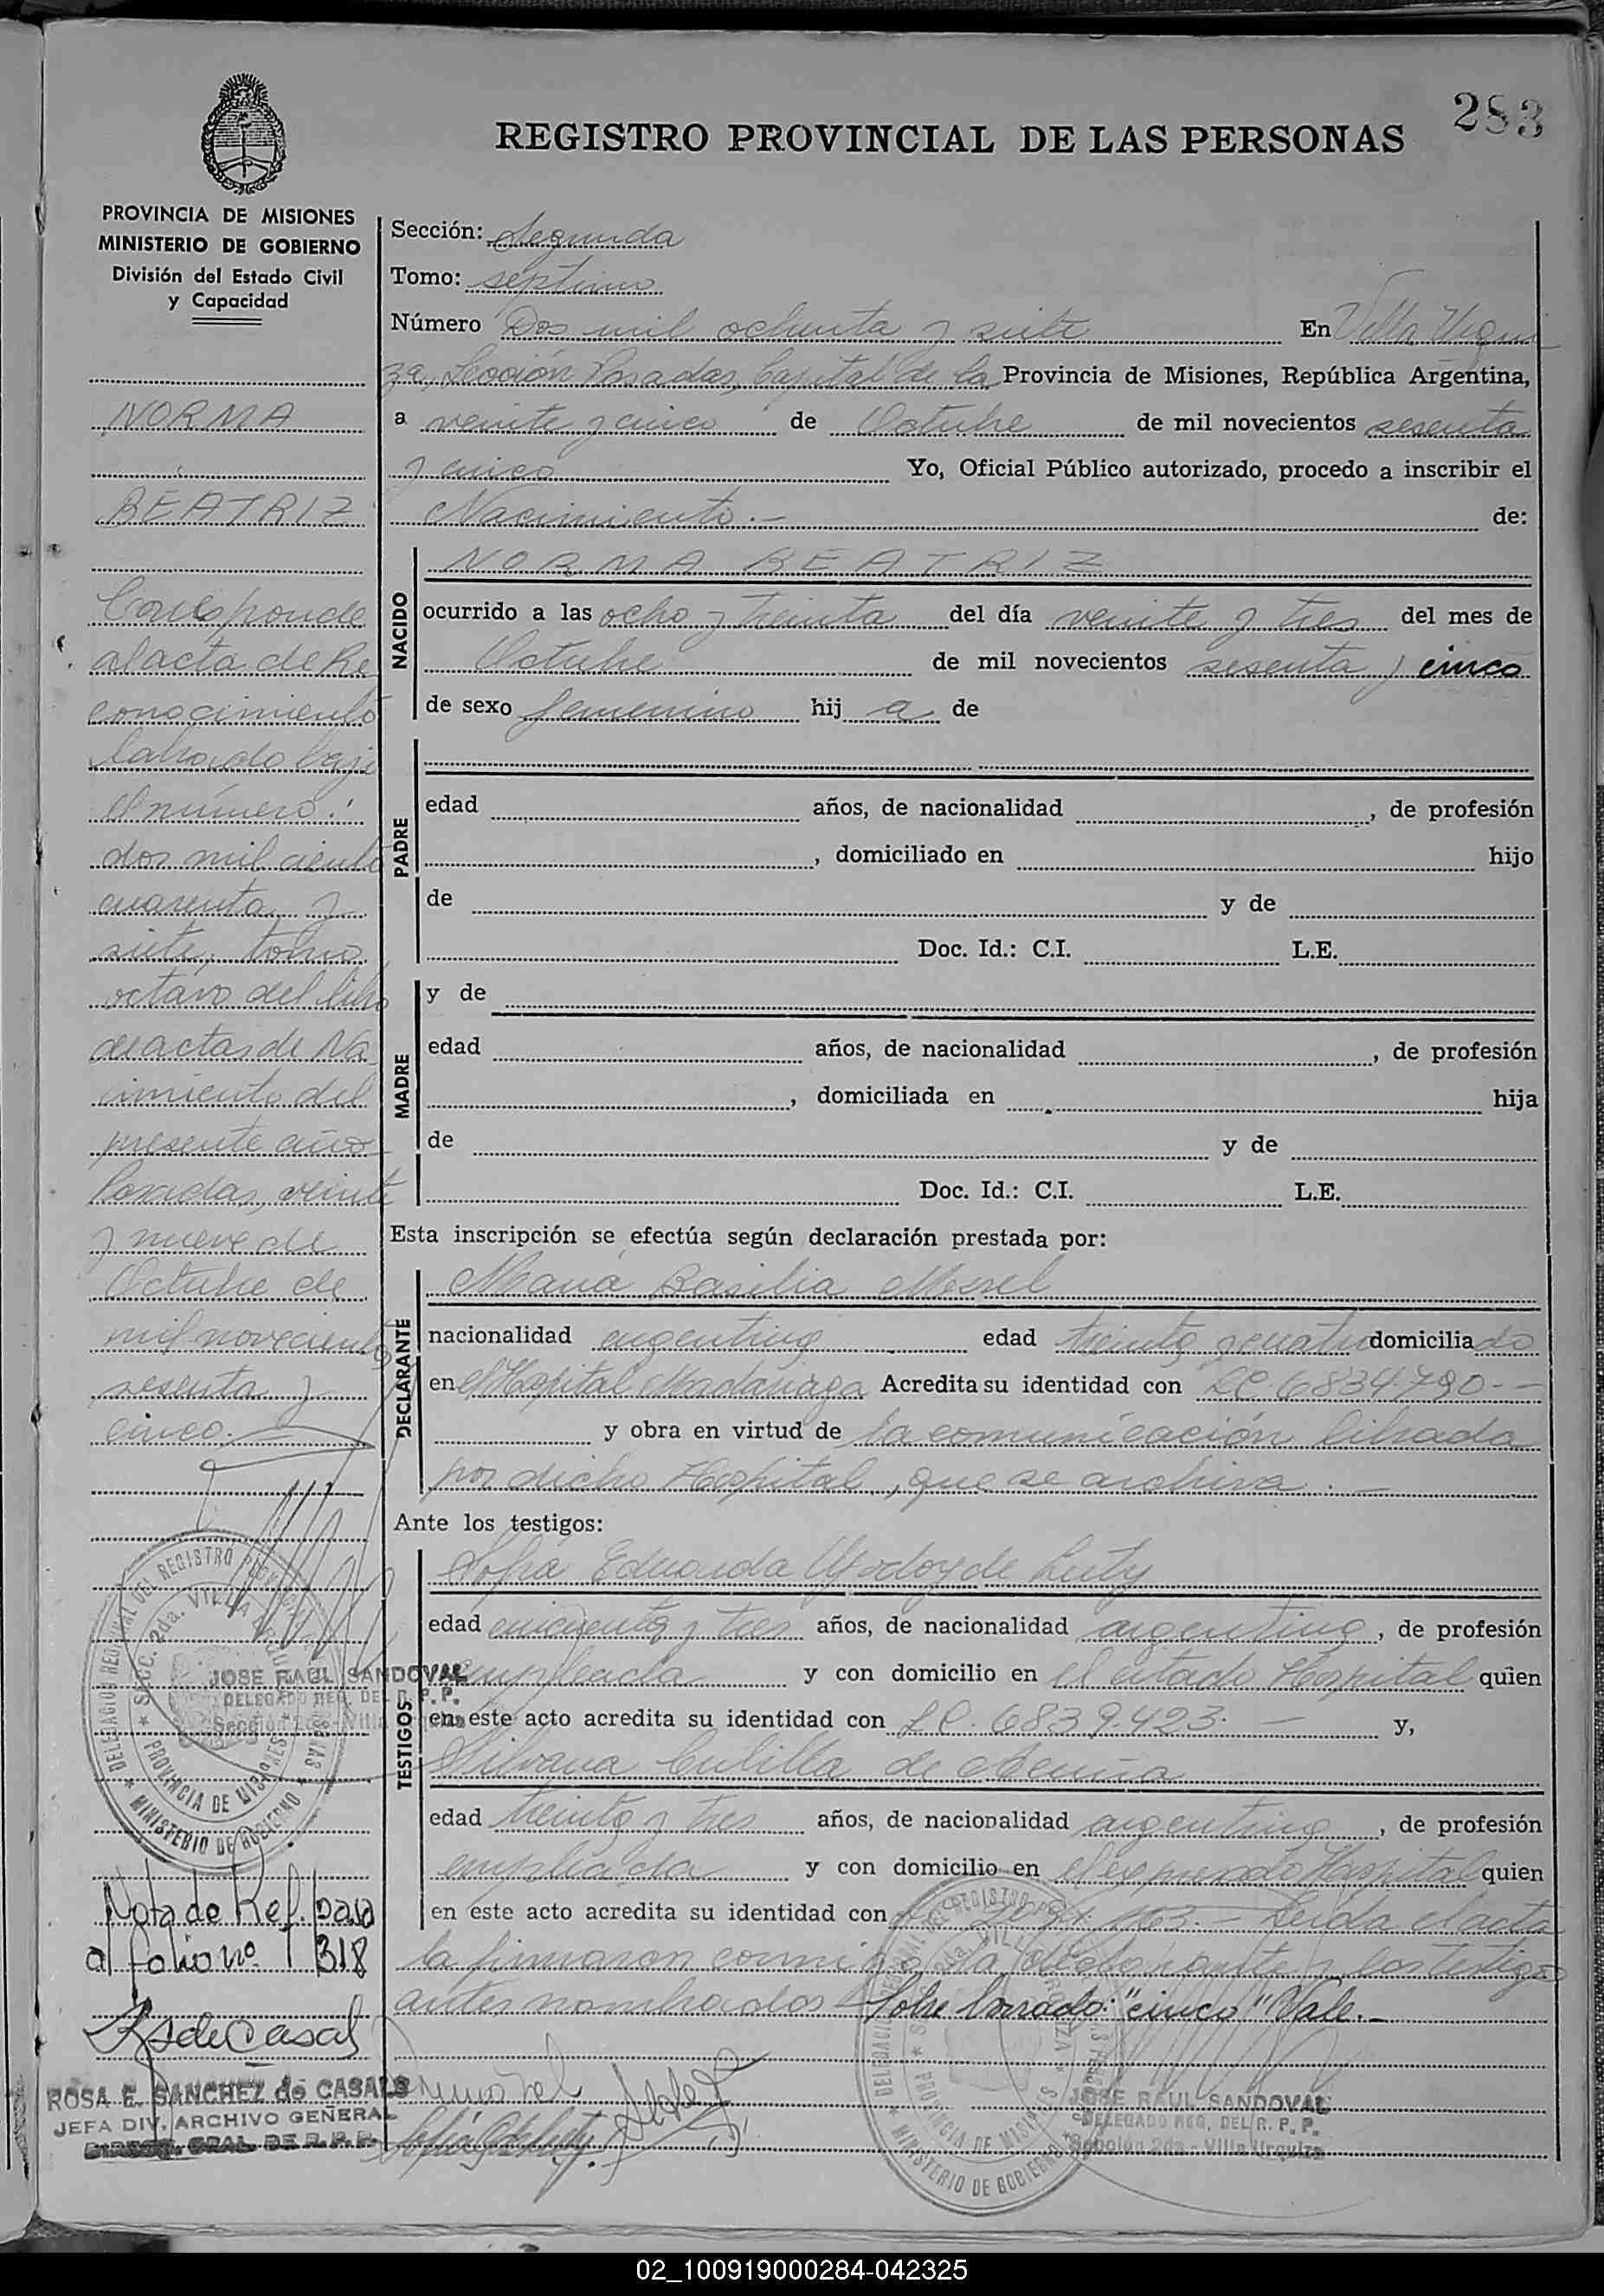 283
REGISTRO PROVINCIAL DE LAS PERSONAS
PROVINCIA DE MISIONES
MINISTERIO DE GOBIERNO
División del Estado Civil
y Capacidad
NORMA
BEATRIZ
Corresponde
al acta de Re
conocimiento
labrado bajo
el número:
dos mil ciento
cuarenta y
siete, tomo
octavo del libro
de actas de Na
cimiento del
presente año
Posadas, veinte
y nueve de
Octubre de
mil novecientos
sesenta y
cinco.
DELEGACION REGIONAL DEL REGISTRO PROVINCIAL DE LAS PERSONAS
SECC. 2da. VILLA URQUIZA
PROVINCIA DE MISIONES
MINISTERIO DE GOBIERNO
JOSE RAUL SANDOVAL
DELEGADO REG. DEL R. P. P.
Sección 2da - Villa Urquiza
Nota de Ref. pasa
al folio nº 318
RsdeCasal
ROSA E. SANCHEZ de CASALS
JEFA DIV. ARCHIVO GENERAL
DIRECC. GRAL. DE R. P. P.
Sección: Segunda
Tomo: séptimo
Número Dos mil ochenta y siete En Villa Urqui
za, Sección Posadas, Capital de la Provincia de Misiones, República Argentina,
a veinte y cinco de Octubre de mil novecientos sesenta
y cinco Yo, Oficial Público autorizado, procedo a inscribir el
Nacimiento.- de:
NACIDO
NORMA BEATRIZ
ocurrido a las ocho y treinta del día veinte y tres del mes de
Octubre de mil novecientos sesenta y cinco
de sexo femenino hij a de
PADRE
edad años, de nacionalidad , de profesión
, domiciliado en hijo
de y de
Doc. Id.: C.I. L.E.
MADRE
y de
edad años, de nacionalidad , de profesión
, domiciliada en hija
de y de
Doc. Id.: C.I. L.E.
Esta inscripción se efectúa según declaración prestada por:
DECLARANTE
María Basilia
nacionalidad argentina edad treinta y cuatro domicilia do
en el Hospital Madariaga Acredita su identidad con LC 6834790.-
y obra en virtud de la comunicación librada
por dicho Hospital, que se archiva.-
Ante los testigos:
TESTIGOS
Sofía Eduarda Godoy de Luty
edad cincuenta y tres años, de nacionalidad argentina, de profesión
empleada y con domicilio en el citado Hospital quien
en este acto acredita su identidad con LC. 6839.423.- y,
Silvana de
edad treinta y tres años, de nacionalidad argentina, de profesión
empleada y con domicilio en el expresado Hospital quien
en este acto acredita su identidad con Leída el acta
la firmaron conmigo, la declarante y los testigos
antes nombrados. Sobre borrado: "cinco" Vale.-
DELEGACION REGIONAL DEL REGISTRO PROVINCIAL DE LAS PERSONAS
SECC. 2da. VILLA URQUIZA
PROVINCIA DE MISIONES
MINISTERIO DE GOBIERNO
JOSE RAUL SANDOVAL
DELEGADO REG. DEL R. P. P.
Sección 2da - Villa Urquiza
02_100919000284-042325